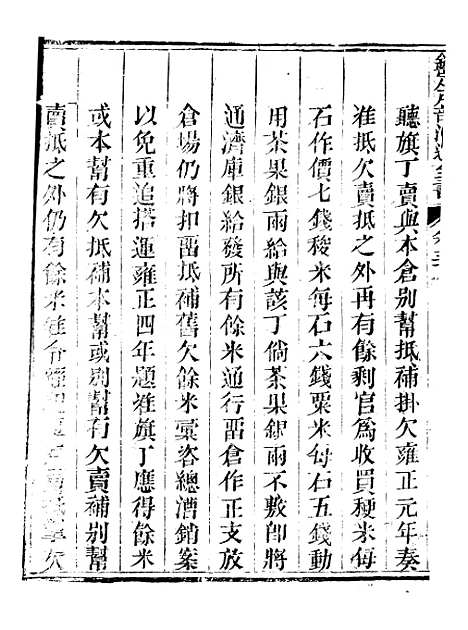 聽旗丁賣與本倉別幫抵補掛欠雍正元年奏
准抵欠賣抵之外再有餘剩官爲收買稉米每
石作價七錢稜米每石六錢粟米每石五錢動
用茶果銀兩給與該丁倘茶果銀兩不敷卽將
通濟庫銀給發所有餘米通行畱倉作正支放
倉場仍將扣畱抵補舊欠餘米彙咨總漕銷案
以免重追搭運雍正四年題准旗丁應得餘米
或本幫有欠抵補本幫或別幫有欠賣補別幫
賣抵之外仍有餘米准令